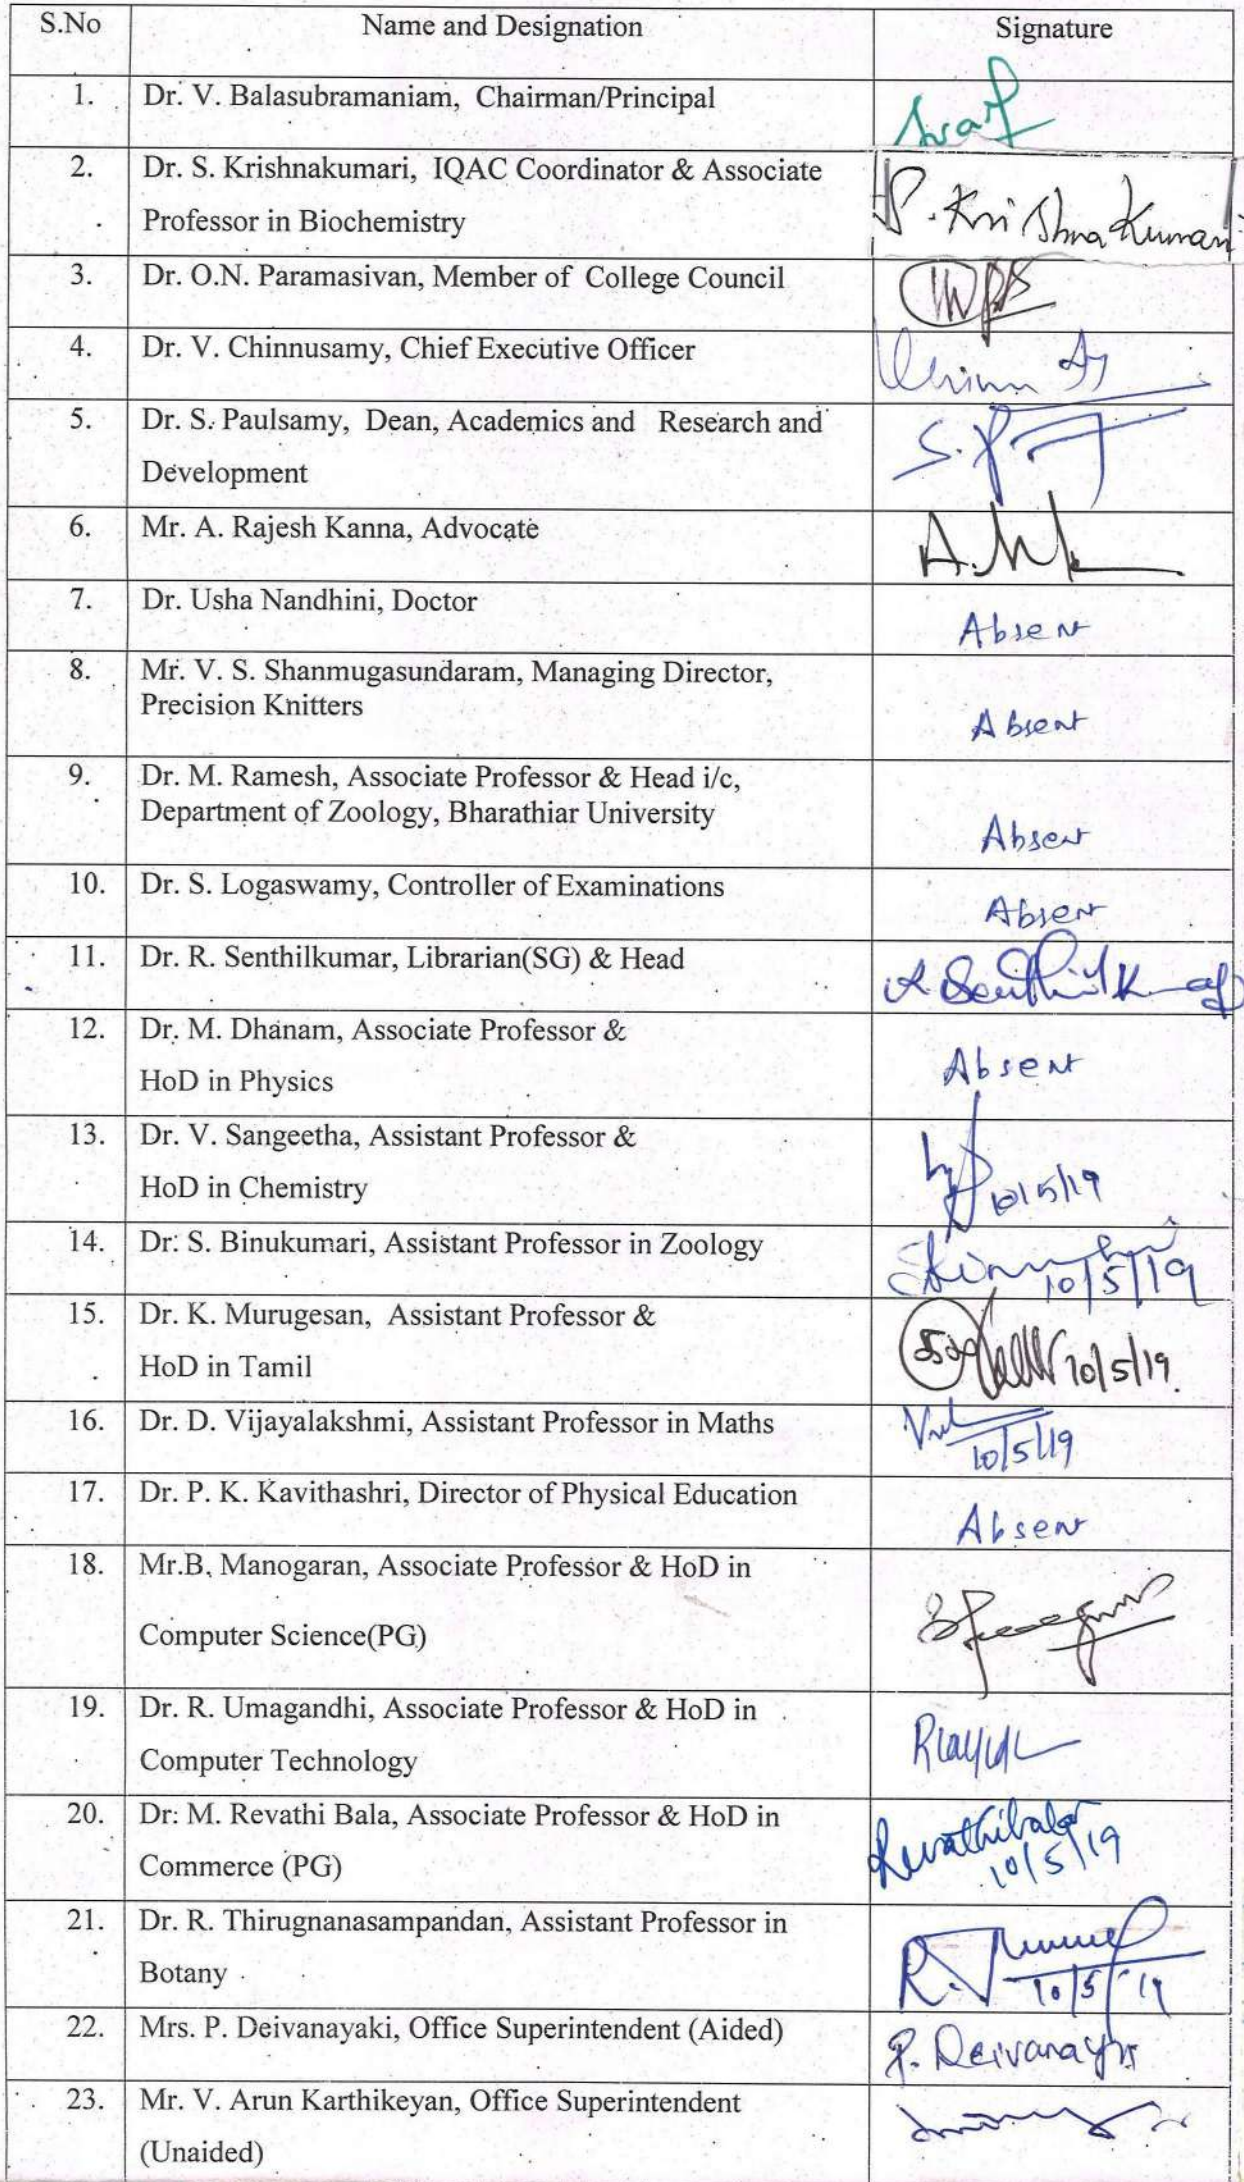 S.No Name and Designation Signature
1. Dr. V. Balasubramaniam, Chairman/Principal
2. Dr. S. Krishnakumari, IQAC Coordinator & Associate
Professor in Biochemistry
S. KriShnaKumari
3. Dr. O.N. Paramasivan, Member of College Council
4. Dr. V. Chinnusamy, Chief Executive Officer
5. Dr. S. Paulsamy, Dean, Academics and Research and
Development
6. Mr. A. Rajesh Kanna, Advocate
7. Dr. Usha Nandhini, Doctor
Absent
8. Mr. V. S. Shanmugasundaram, Managing Director,
Precision Knitters
Absent
9. Dr. M. Ramesh, Associate Professor & Head i/c,
Department of Zoology, Bharathiar University
Absent
10. Dr. S. Logaswamy, Controller of Examinations
Absent
11. Dr. R. Senthilkumar, Librarian(SG) & Head
12. Dr. M. Dhanam, Associate Professor &
HoD in Physics
Absent
13. Dr. V. Sangeetha, Assistant Professor &
HoD in Chemistry
10/5/19
14. Dr. S. Binukumari, Assistant Professor in Zoology
10/5/19
15. Dr. K. Murugesan, Assistant Professor &
HoD in Tamil
10/5/19.
16. Dr. D. Vijayalakshmi, Assistant Professor in Maths
10/5/19
17. Dr. P. K. Kavithashri, Director of Physical Education
Absent
18. Mr.B. Manogaran, Associate Professor & HoD in
Computer Science(PG)
19. Dr. R. Umagandhi, Associate Professor & HoD in
Computer Technology
20. Dr. M. Revathi Bala, Associate Professor & HoD in
Commerce (PG)
Revathibala
10/5/19
21. Dr. R. Thirugnanasampandan, Assistant Professor in
Botany
10/5/19
22. Mrs. P. Deivanayaki, Office Superintendent (Aided)
P. Deivanayaki
23. Mr. V. Arun Karthikeyan, Office Superintendent
(Unaided)